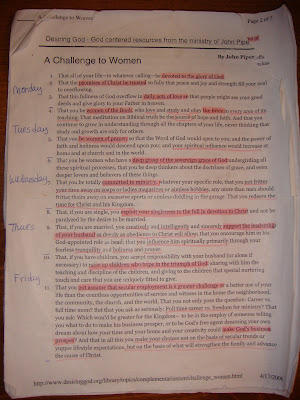 A Challenge to Women
Page 2 of 3
Desiring God - God centered resources from the ministry of John Piper
A Challenge to Women
By John Piper
1. That all of your life--in whatever calling--be devoted to the glory of God.
2. That the promises of Christ be trusted so fully that peace and joy and strength fill your soul
to overflowing.
3. That this fullness of God overflow in daily acts of love so that people might see your good
deeds and give glory to your Father in heaven.
4. That you be women of the Book, who love and study and obey the Bible in every area of its
teaching. That meditation on Biblical truth be the source of hope and faith. And that you
continue to grow in understanding through all the chapters of your life, never thinking that
study and growth are only for others.
Monday
Tuesday
5. That you be women of prayer, so that the Word of God will open to you; and the power of
faith and holiness will descend upon you; and your spiritual influence will increase at
home and at church and in the world.
6. That you be women who have a deep grasp of the sovereign grace of God undergirding all
these spiritual processes, that you be deep thinkers about the doctrines of grace, and even
deeper lovers and believers of these things.
Wednesday
7. That you be totally committed to ministry, whatever your specific role, that you not fritter
your time away on soaps or ladies magazines or aimless hobbies, any more than men should
fritter theirs away on excessive sports or aimless diddling in the garage. That you redeem the
time for Christ and his Kingdom.
8. That, if you are single, you exploit your singleness to the full in devotion to Christ and not be
paralyzed by the desire to be married.
Thurs
9. That, if you are married, you creatively and intelligently and sincerely support the leadership
of your husband as deeply as obedience to Christ will allow; that you encourage him in his
God-appointed role as head; that you influence him spiritually primarily through your
fearless tranquility and holiness and prayer.
10. That, if you have children, you accept responsibility with your husband (or alone if
necessary) to raise up children who hope in the triumph of God, sharing with him the
teaching and discipline of the children, and giving to the children that special nurturing
touch and care that you are uniquely fitted to give.
Friday
11. That you not assume that secular employment is a greater challenge or a better use of your
life than the countless opportunities of service and witness in the home the neighborhood,
the community, the church, and the world. That you not only pose the question: Career vs.
full time mom? But that you ask as seriously: Full time career vs. freedom for ministry? That
you ask: Which would be greater for the Kingdom-- to be in the employ of someone telling
you what to do to make his business prosper, or to be God's free agent dreaming your own
dream about how your time and your home and your creativity could make God's business
prosper? And that in all this you make your choices not on the basis of secular trends or
yuppie lifestyle expectations, but on the basis of what will strengthen the family and advance
the cause of Christ.